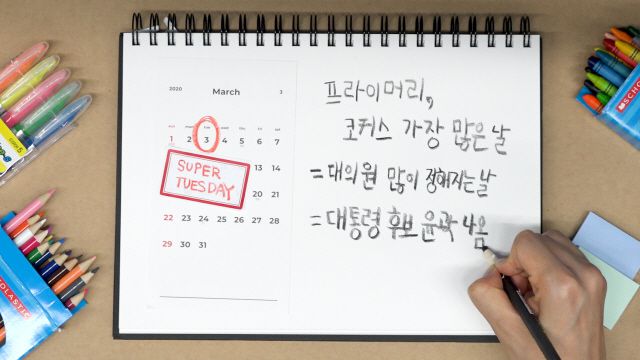 2020 March 3
sun mon tue wed thu fri sat
1 2 3 4 5 6 7
SUPER
TUESDAY
13 14
20 21
22 23 24 25 26 27 28
29 30 31
프라이머리,
코커스 가장 많은 날
= 대의원 많이 정해지는 날
= 대통령 후보 윤곽 나옴
SCHOLASTIC